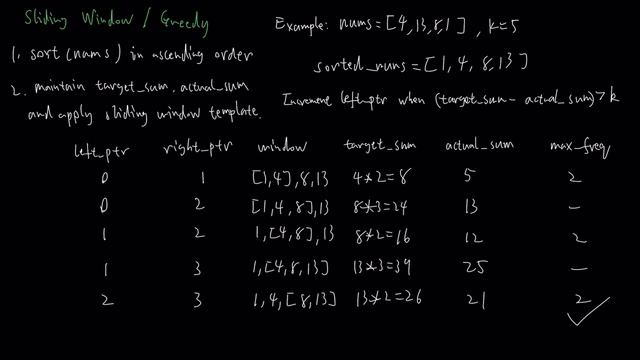 Sliding Window / Greedy
1. sort(nums) in ascending order
2. maintain target_sum, actual_sum
and apply sliding window template.
Example: nums = [4,13,8,1], k=5
sorted_nums = [1, 4, 8, 13]
Increment left_ptr when (target_sum - actual_sum) > k
left_ptr right_ptr window target_sum actual_sum max_freq
0 1 [1,4],8,13 4*2=8 5 2
0 2 [1,4,8],13 8*3=24 13 —
1 2 1,[4,8],13 8*2=16 12 2
1 3 1,[4,8,13] 13*3=39 25 —
2 3 1,4,[8,13] 13*2=26 21 2